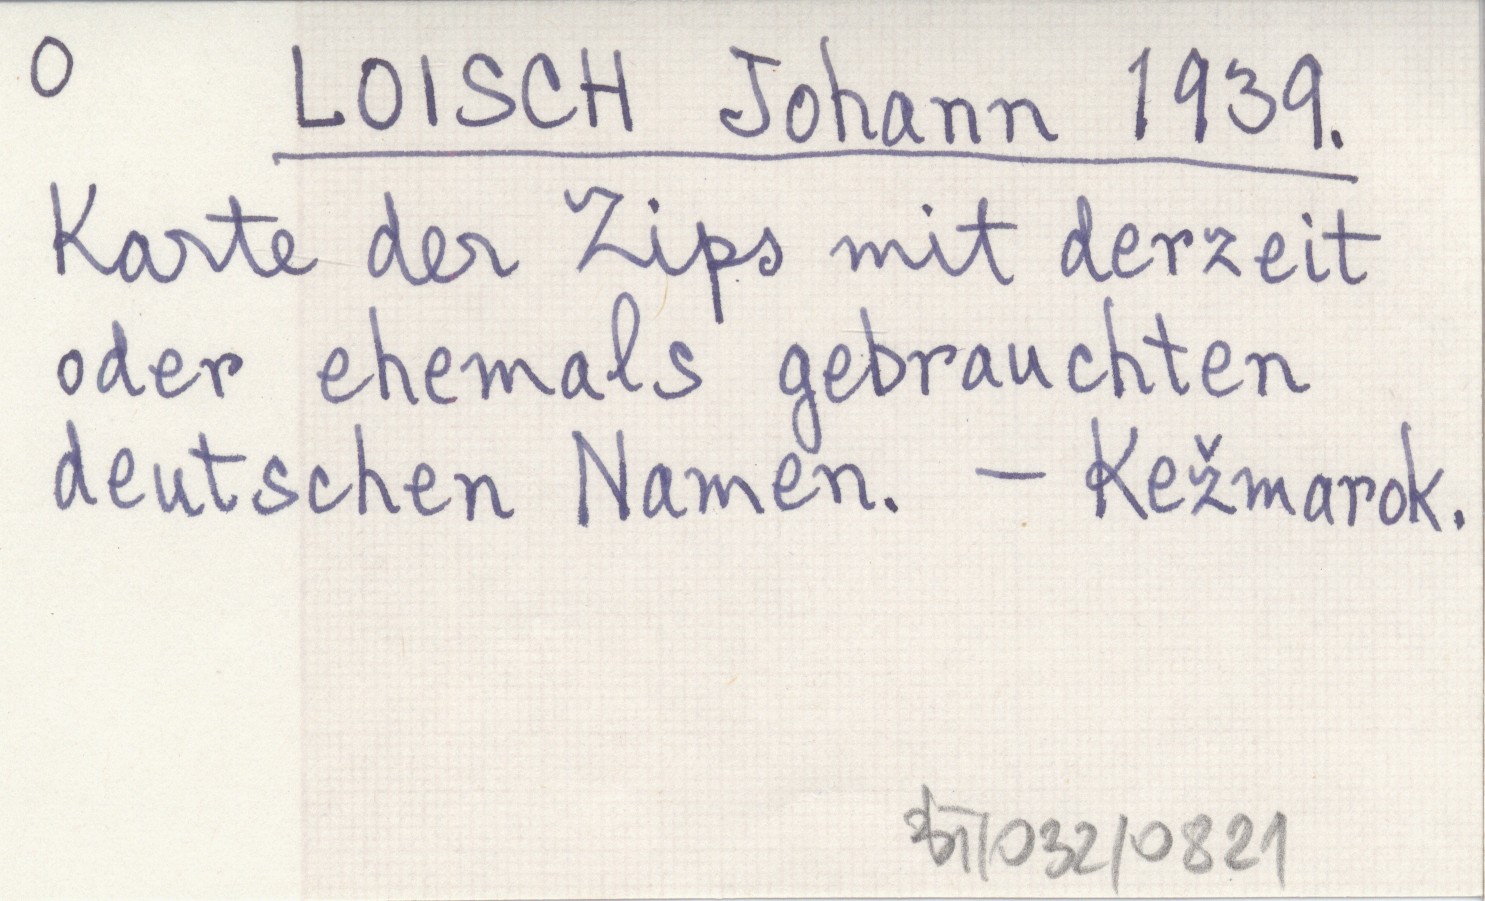 O LOISCH Johann 1939.
Karte der Zips mit derzeit
oder ehemals gebrauchten
deutschen Namen. – Kežmarok.
/032/0821